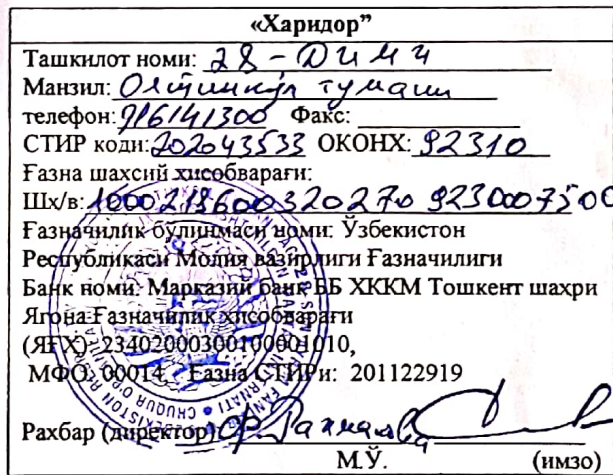 «Харидор”
Ташкилот номи: 28 - ДИМИ
Манзил: Олтинкўл тумани
телефон: 916141300 Факс:
СТИР коди: 202043533 ОКОНХ: 92310
Ғазна шахсий хисобварағи:
Шх/в: 100021860032027092300075 00
Ғазначилик бўлинмаси номи: Ўзбекистон
Республикаси Молия вазирлиги Ғазначилиги
Банк номи: Марказий банк ББ ХККМ Тошкент шахри
Ягона Ғазначилик хисобварағи
(ЯҒХ): 23402000300100001010,
МФО: 00014 Ғазна СТИРи: 201122919
Рахбар (директор)
М.Ў. (имзо)